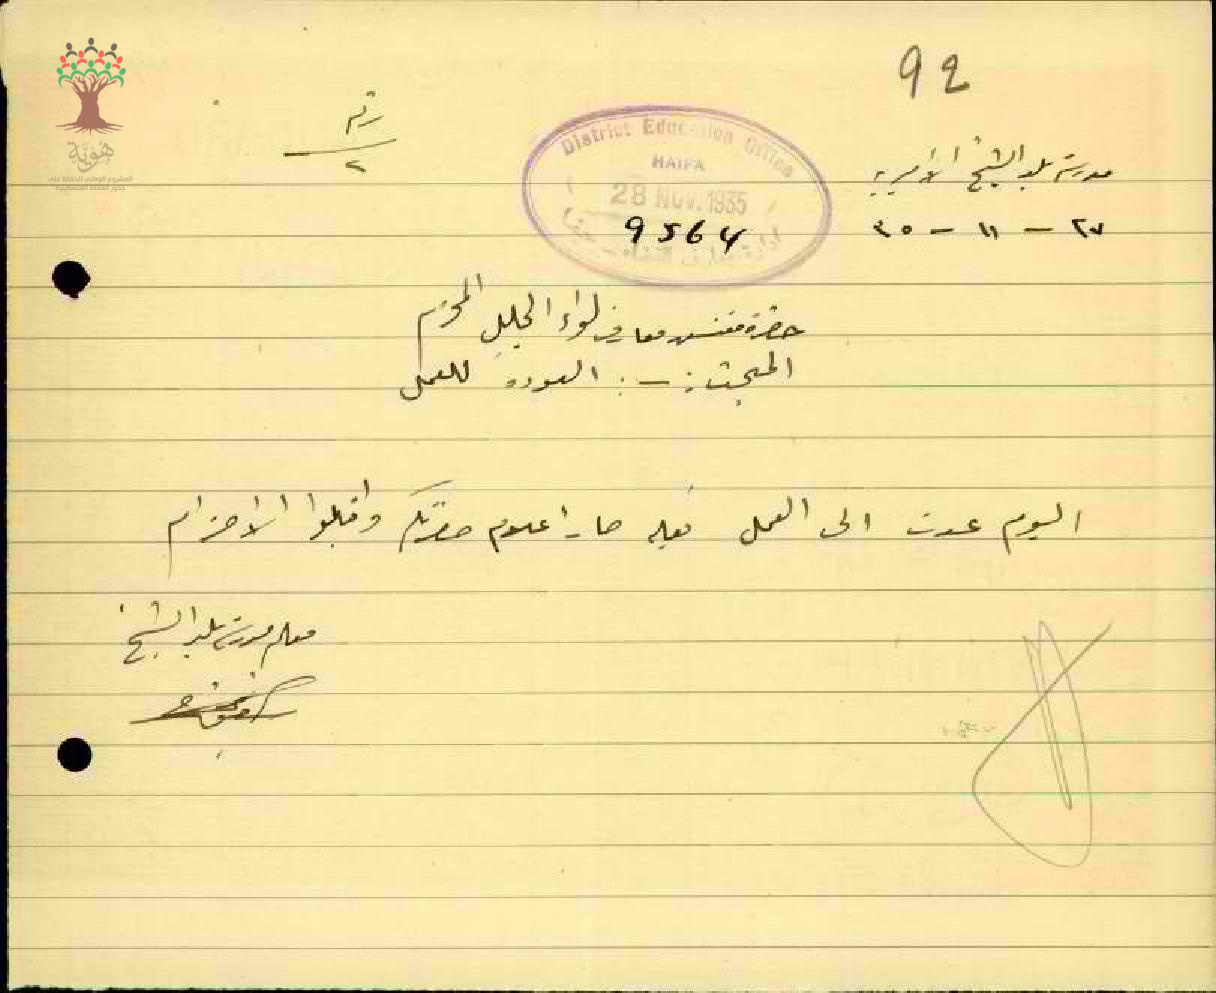 92
رقم
٢
District Education Office
HAIFA
28 NOV. 1935
9564
إدارة معارف اللواء – حيفا
مدرسة بلد الشيخ الاميرية
٢٧ – ١١ – ٣٥
حضرة مفتش معارف لواء الجليل المحترم
المبحث :– العودة للعمل
اليوم عدت الى العمل فعليه صار اعلام حضرتكم واقبلوا الاحترام
معلم مدرسة بلد الشيخ
هوية
المشروع الوطني للحفاظ على
جذور العائلة الفلسطينية